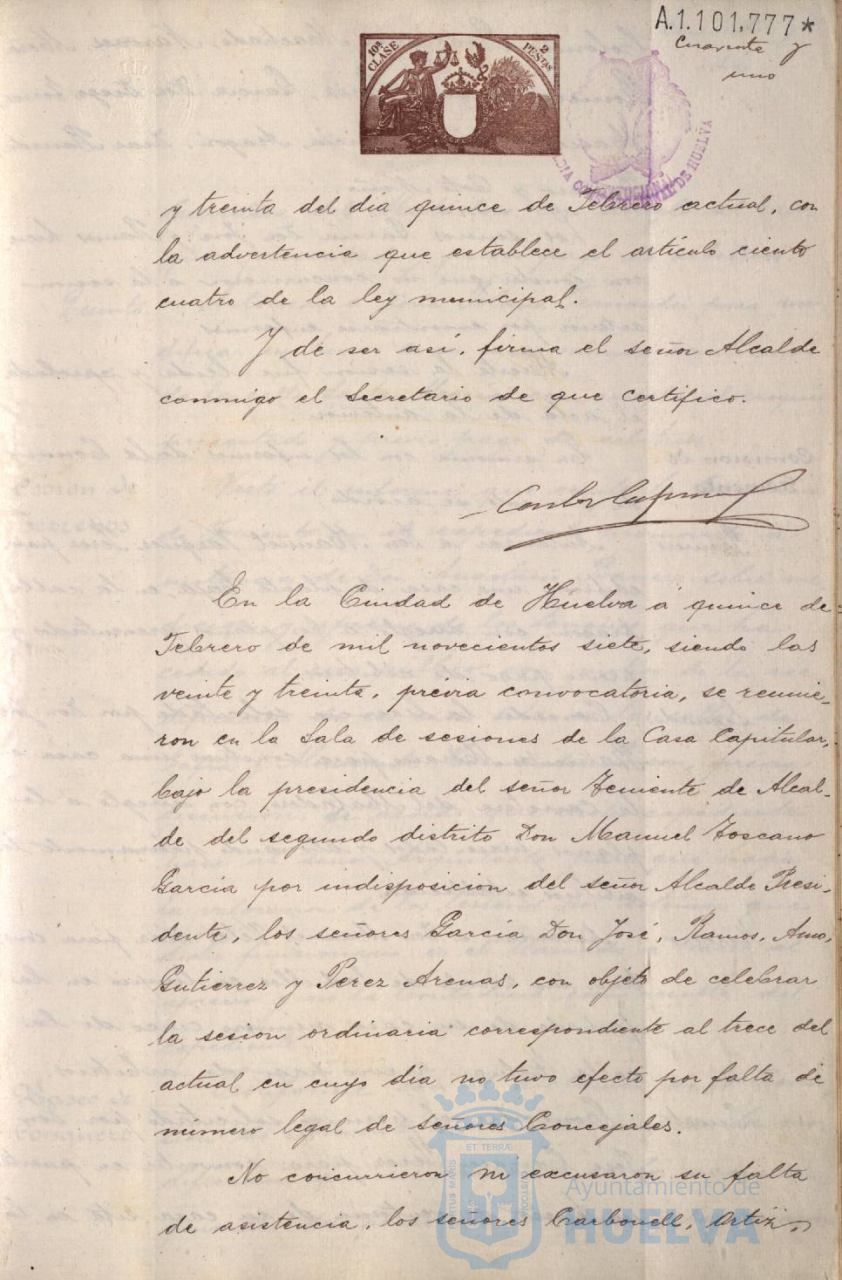 A.1.101,777*
Cuarenta y
uno
10ª CLASE
2 PESETAS
y treinta del dia quince de Febrero actual, con
la advertencia que establece el artículo ciento
cuatro de la ley municipal.
Y de ser así, firma el señor Alcalde
conmigo el Secretario de que certifico.
En la Ciudad de Huelva á quince de
Febrero de mil novecientos siete, siendo las
veinte y treinta, prévia convocatoria, se reunie-
ron en la Sala de sesiones de la Casa Capitular,
bajo la presidencia del señor Teniente de Alcal-
de del segundo distrito Don Manuel Toscano
García por indisposicion del señor Alcalde Presi-
dente, los señores García Don José, Ramos, Amo,
Gutierrez y Perez Arenas, con objeto de celebrar
la sesion ordinaria correspondiente al trece del
actual en cuyo día no tuvo efecto por falta de
número legal de señores Concejales.
No concurrieron ni excusaron su falta
de asistencia, los señores Carbonell, Ortiz,
ET TERRÆ
Ayuntamiento de
HUELVA